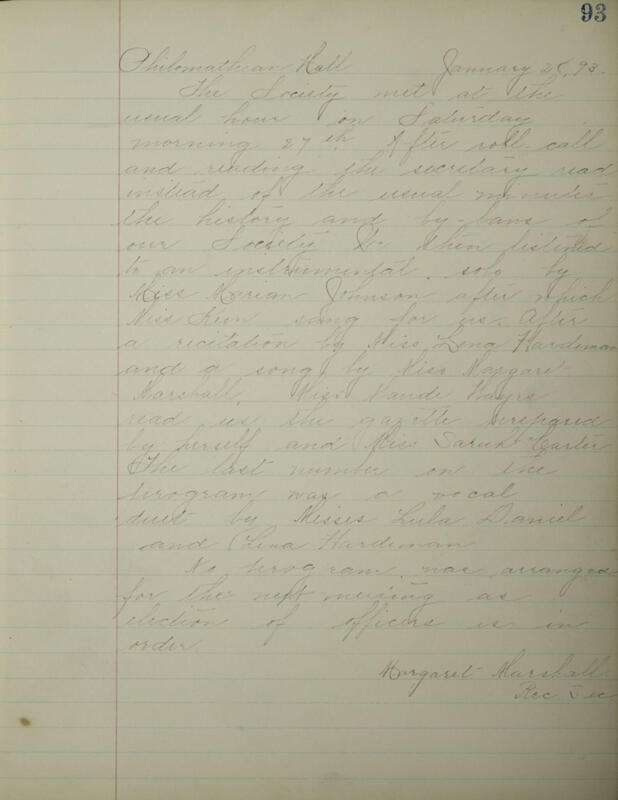 93
Philomathean Hall January 28, 93.
The Society met at the
usual hour on Saturday
morning 27th. After roll call
and reading the secretary read
instead of the usual minutes
the history and by-laws of
our Society. We then listened
to an instrumental solo by
Miss Marian Johnson after which
Miss Keen sang for us. After
a recitation by Miss Lena Hardeman
and a song by Miss Margaret
Marshall, Miss Maude Hayes
read us the gazette prepared
by herself and Miss Sarah Carter
The last number on the
program was a vocal
duet by Misses Lula Daniel
and Lena Hardeman
No program was arranged
for the next meeting as
election of officers is in
order.
Margaret Marshall
Rec Sec